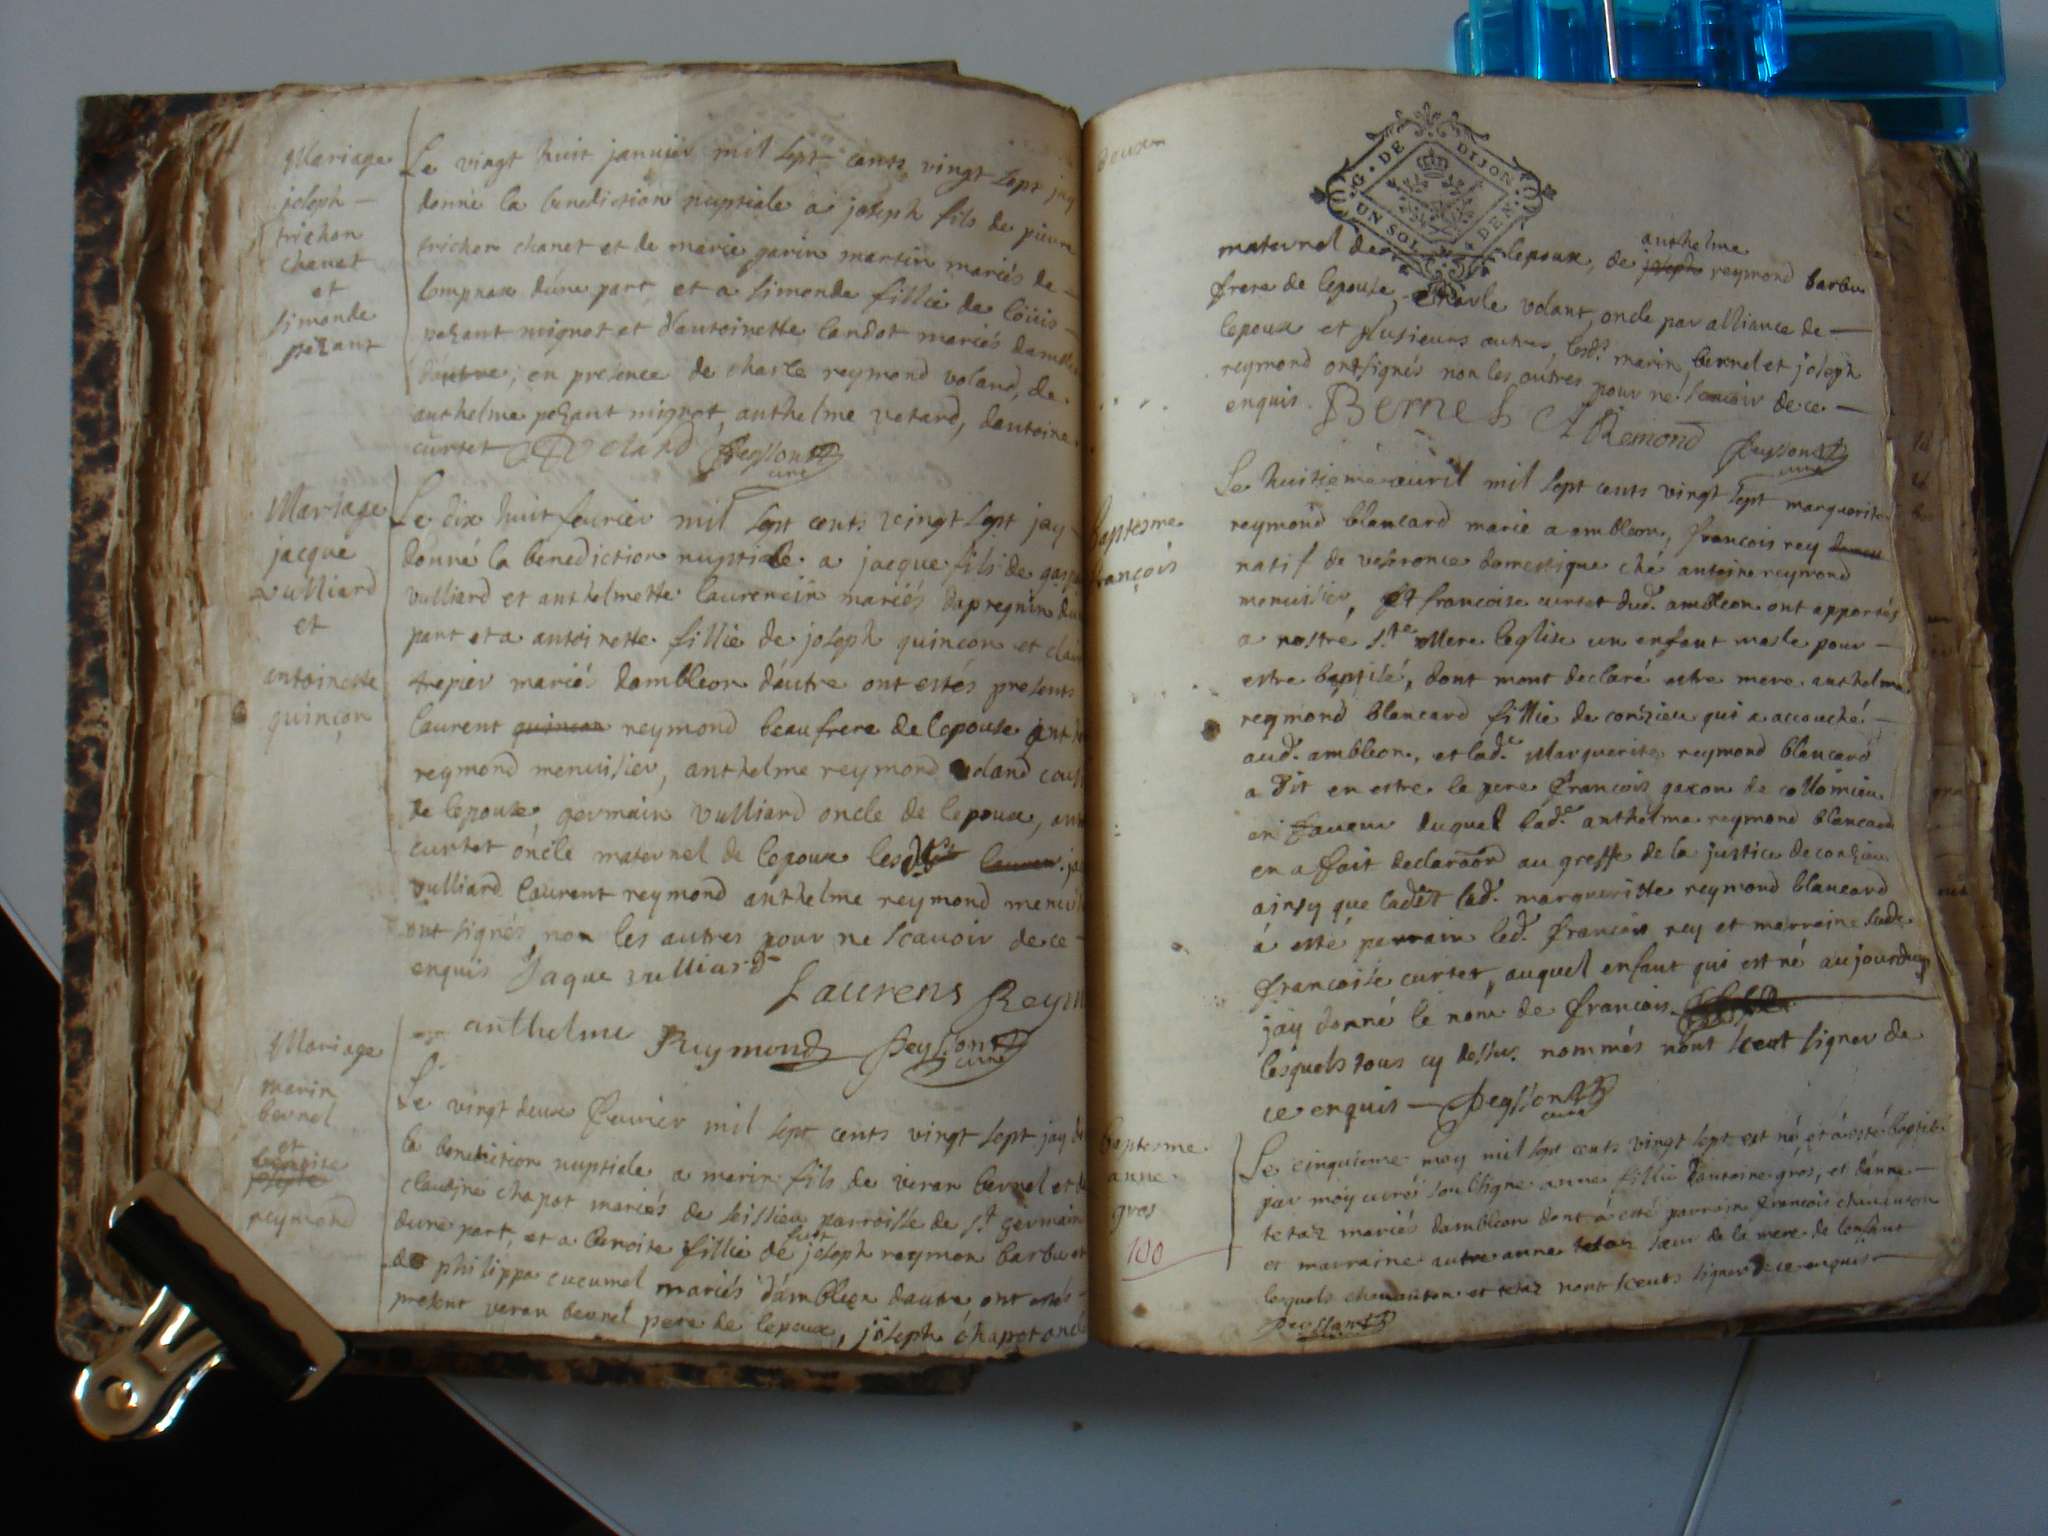 Mariage
joseph —
trichon
chanet
et
simonde
pezant
Le vingt huit januier mil sept cents vingt sept jay
donné la benediction nuptiale a joseph fils de pierre
trichon chanet et de marie garin martin mariés de —
lompnax dúne part, et a simonde fillie de loüis —
pezant mignot et d'antoinette landot mariés
d'autre, en presence de charle reymond voland, de
anthelme pezant mignot, anthelme vetard, dantoine
curtet Voland Peysson
curé
Mariage
jacque
vulliard
et
antoinette
quinçon
Le dix huit feurier mil sept cents vingt sept jay —
donné la benediction nuptiale a jacque fils de
vulliard et anthelmette laurencin mariés dapregnin
part et a antoinette fillie de joseph quinçon et
trepier mariés dambleon dáutre ont estés presents
laurent quincon reymond beaufrere de lepouse
reymond menuisier, anthelme reymond voland
de lepouse germain vulliard oncle de lepoux,
curtet oncle maternel de lepoux
vulliard laurent reymond anthelme reymond
ont signés non les autres pour ne scauoir de ce —
enquis Jaque vulliard
Laurens Reym
anthelme Reymond Peysson
curé
Mariage
marin
bernel
et
benoite
joseph
reymond
Le vingt deux feurier mil sept cents vingt sept jay
la benediction nuptiale a marin fils de veran bernel et
claudine chapot mariés de seissieu parroisse de st germain
dune part, et a benoite fillie de fut joseph reymon barbu et
de philippe cucumel mariés dámbleon dautre, ont estés
present veran bernel pere de lepoux, joseph chapot oncle
deux
G. DE DIJON
UN SOL 4 DEN.
maternel de lepoux, de joseph anthelme reymond barbu
frere de lepouse, charle volant, oncle par alliance de —
lepoux et plusieurs autres, lesd. marin bernel et joseph
reymond ont signés non les autres pour ne scauoir de ce —
enquis. Bernel A Remond Peysson
curé
baptesme
françois
Le huitieme auril mil sept cents vingt sept marguerite
reymond blancard marié a ambleon, françois rey
natif de vesronce domestique ché antoine reymond
menuisier, et francoise curtet dud. ambleon ont apportés
a nostre ste Mere leglise un enfant masle pour —
estre baptisé, dont mont declaré estre mere anthelme
reymond blancard fillie de conzieu qui a accouché —
aud. ambleon, et lade Marguerite reymond blancard
a dit en estre le pere françois gaxon de collomieu
en faueur duquel lade anthelme reymond blancard
en a fait declaraon au greffe de la justice de conzieu
ainsy que ladet lad. margueritte reymond blancard
á esté parrain led. françois rey et marraine lade
françoise curtet, auquel enfant qui est né aujourdhuy
jay donné le nom de françois.
lesquels tous cy dessus nommés nont sceut signer de
ce enquis — Peysson
curé
baptesme
anne
gros
100
Le cinquieme may mil sept cents vingt sept est né et á esté baptisé
par moy curé soubsigné anne fillie dantoine gros, et dánne —
tetaz mariés dambleon dont á esté parrain françois chauanton
et marraine autre anne tetaz sœur de la mere de lenfant
lesquels chauanton et tetaz nont sceuts signer de ce enquis —
Peysson